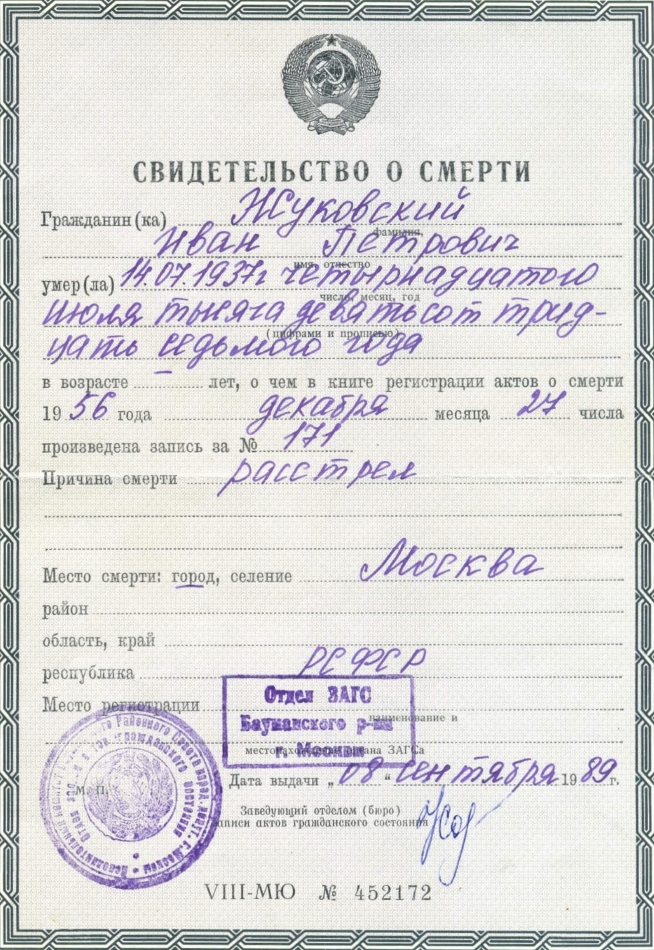 СВИДЕТЕЛЬСТВО О СМЕРТИ
Гражданин(ка) Жуковский
фамилия,
Иван Петрович
имя, отчество
умер(ла) 14.07.1937г четырнадцатого
число, месяц, год
июля тысяча девятьсот трид-
(цифрами и прописью)
цать седьмого года
в возрасте — лет, о чем в книге регистрации актов о смерти
1956 года декабря месяца 27 числа
произведена запись за № 171
Причина смерти расстрел
Место смерти: город, селение Москва
район
область, край
республика РСФСР
Место регистрации
наименование и
Отдел ЗАГС
Бауманского р-на
г. Москвы
местонахождение органа ЗАГСа
М. П.
Дата выдачи „08“ сентября 1989 г.
Заведующий отделом (бюро)
записи актов гражданского состояния
VIII-МЮ № 452172